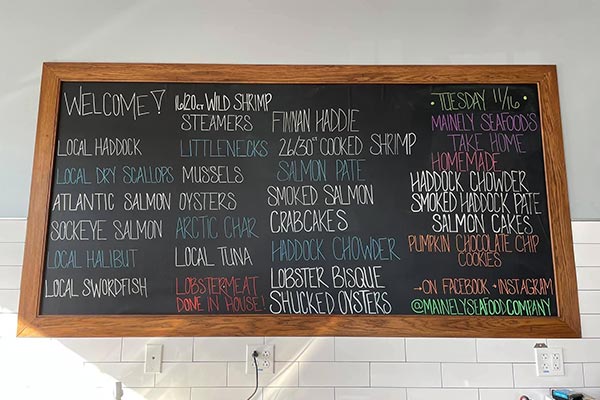 WELCOME!
LOCAL HADDOCK
LOCAL DRY SCALLOPS
ATLANTIC SALMON
SOCKEYE SALMON
LOCAL HALIBUT
LOCAL SWORDFISH
16/20CT WILD SHRIMP
STEAMERS
LITTLENECKS
MUSSELS
OYSTERS
ARCTIC CHAR
LOCAL TUNA
LOBSTERMEAT
DONE IN HOUSE!
FINNAN HADDIE
26/30CT COOKED SHRIMP
SALMON PATE
SMOKED SALMON
CRABCAKES
HADDOCK CHOWDER
LOBSTER BISQUE
SHUCKED OYSTERS
• TUESDAY 11/16 •
MAINELY SEAFOODS
TAKE HOME
HOMEMADE
HADDOCK CHOWDER
SMOKED HADDOCK PATE
SALMON CAKES
PUMPKIN CHOCOLATE CHIP
COOKIES
→ON FACEBOOK + INSTAGRAM
@MAINELYSEAFOODCOMPANY